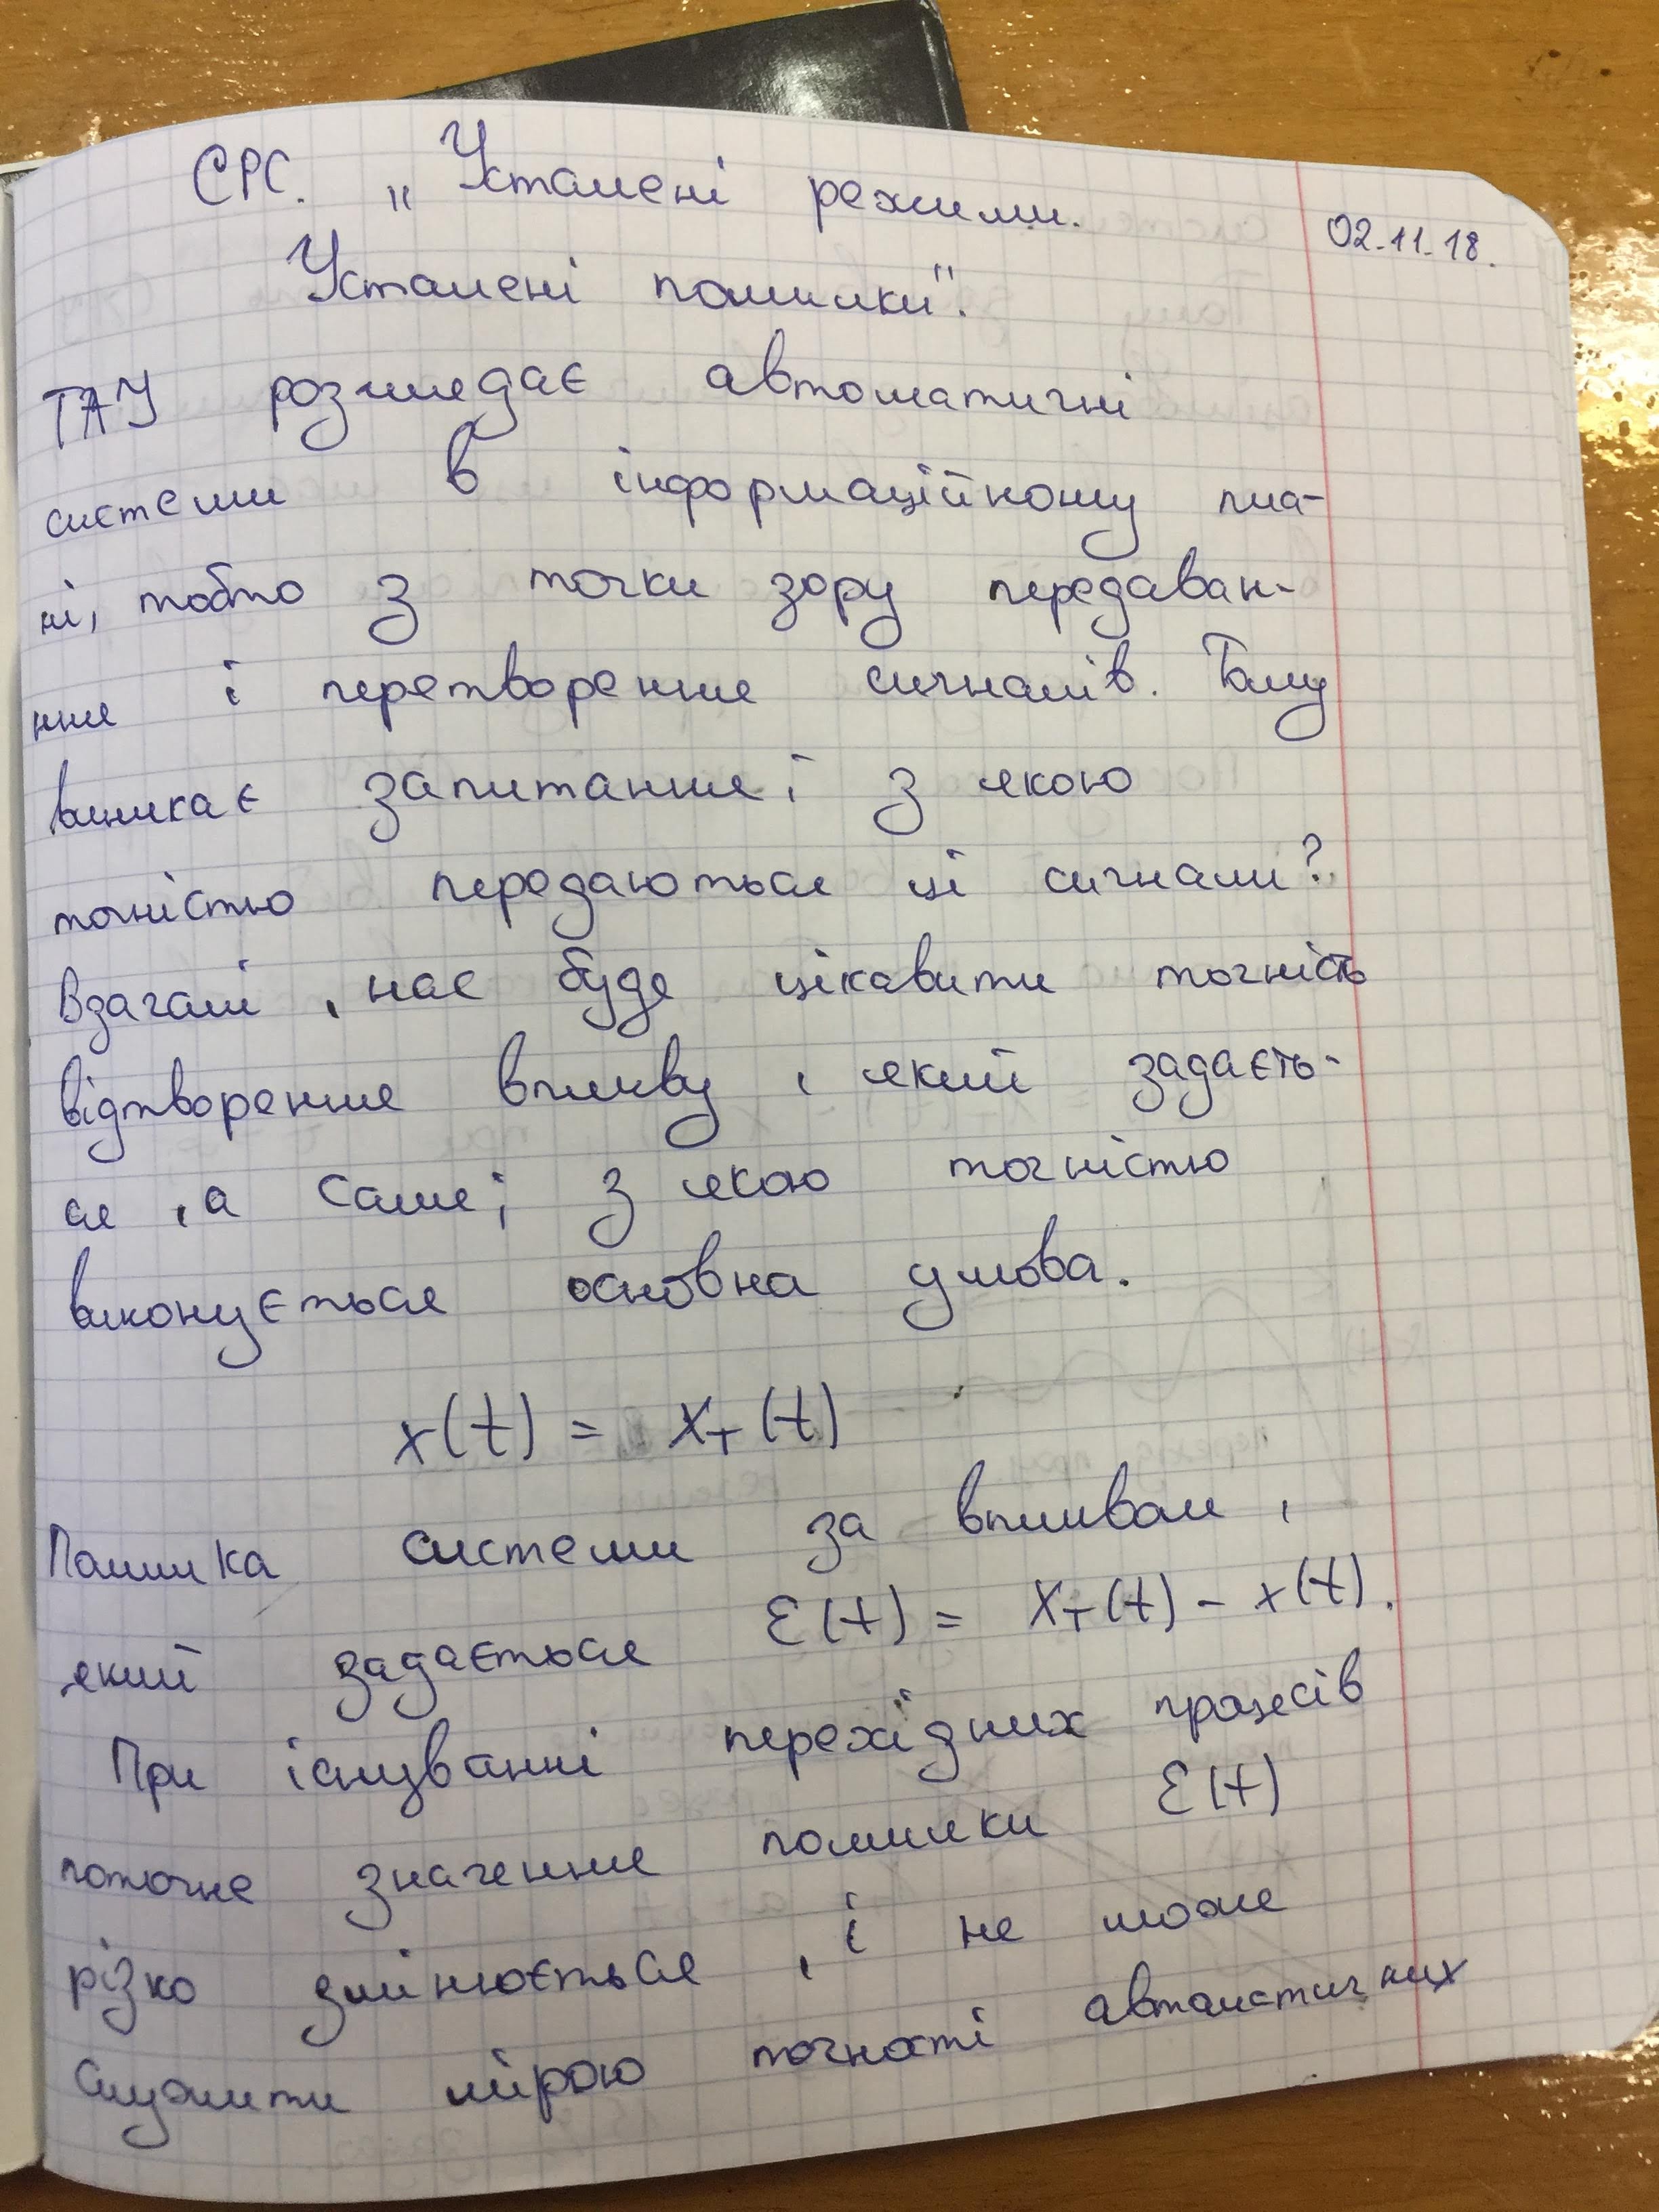 СРС. „Усталені режими.
02.11.18.
Усталені помилки".
ТАУ розглядає автоматичні
системи в інформаційному пла-
ні, тобто з точки зору передаван-
ня і перетворення сигналів. Тому
виникає запитання; з якою
точністю передаються ці сигнали?
Взагалі, нас буде цікавити точність
відтворення впливу, який задаєть-
ся, а саме; з якою точністю
виконується основна умова.
x(t) = xт(t)
Помилка системи за впливом,
який задається ε(t) = xт(t) - x(t).
При існуванні перехідних процесів
поточне значення помилки ε(t)
різко змінюється, і не може
служити мірою точності автоматичних